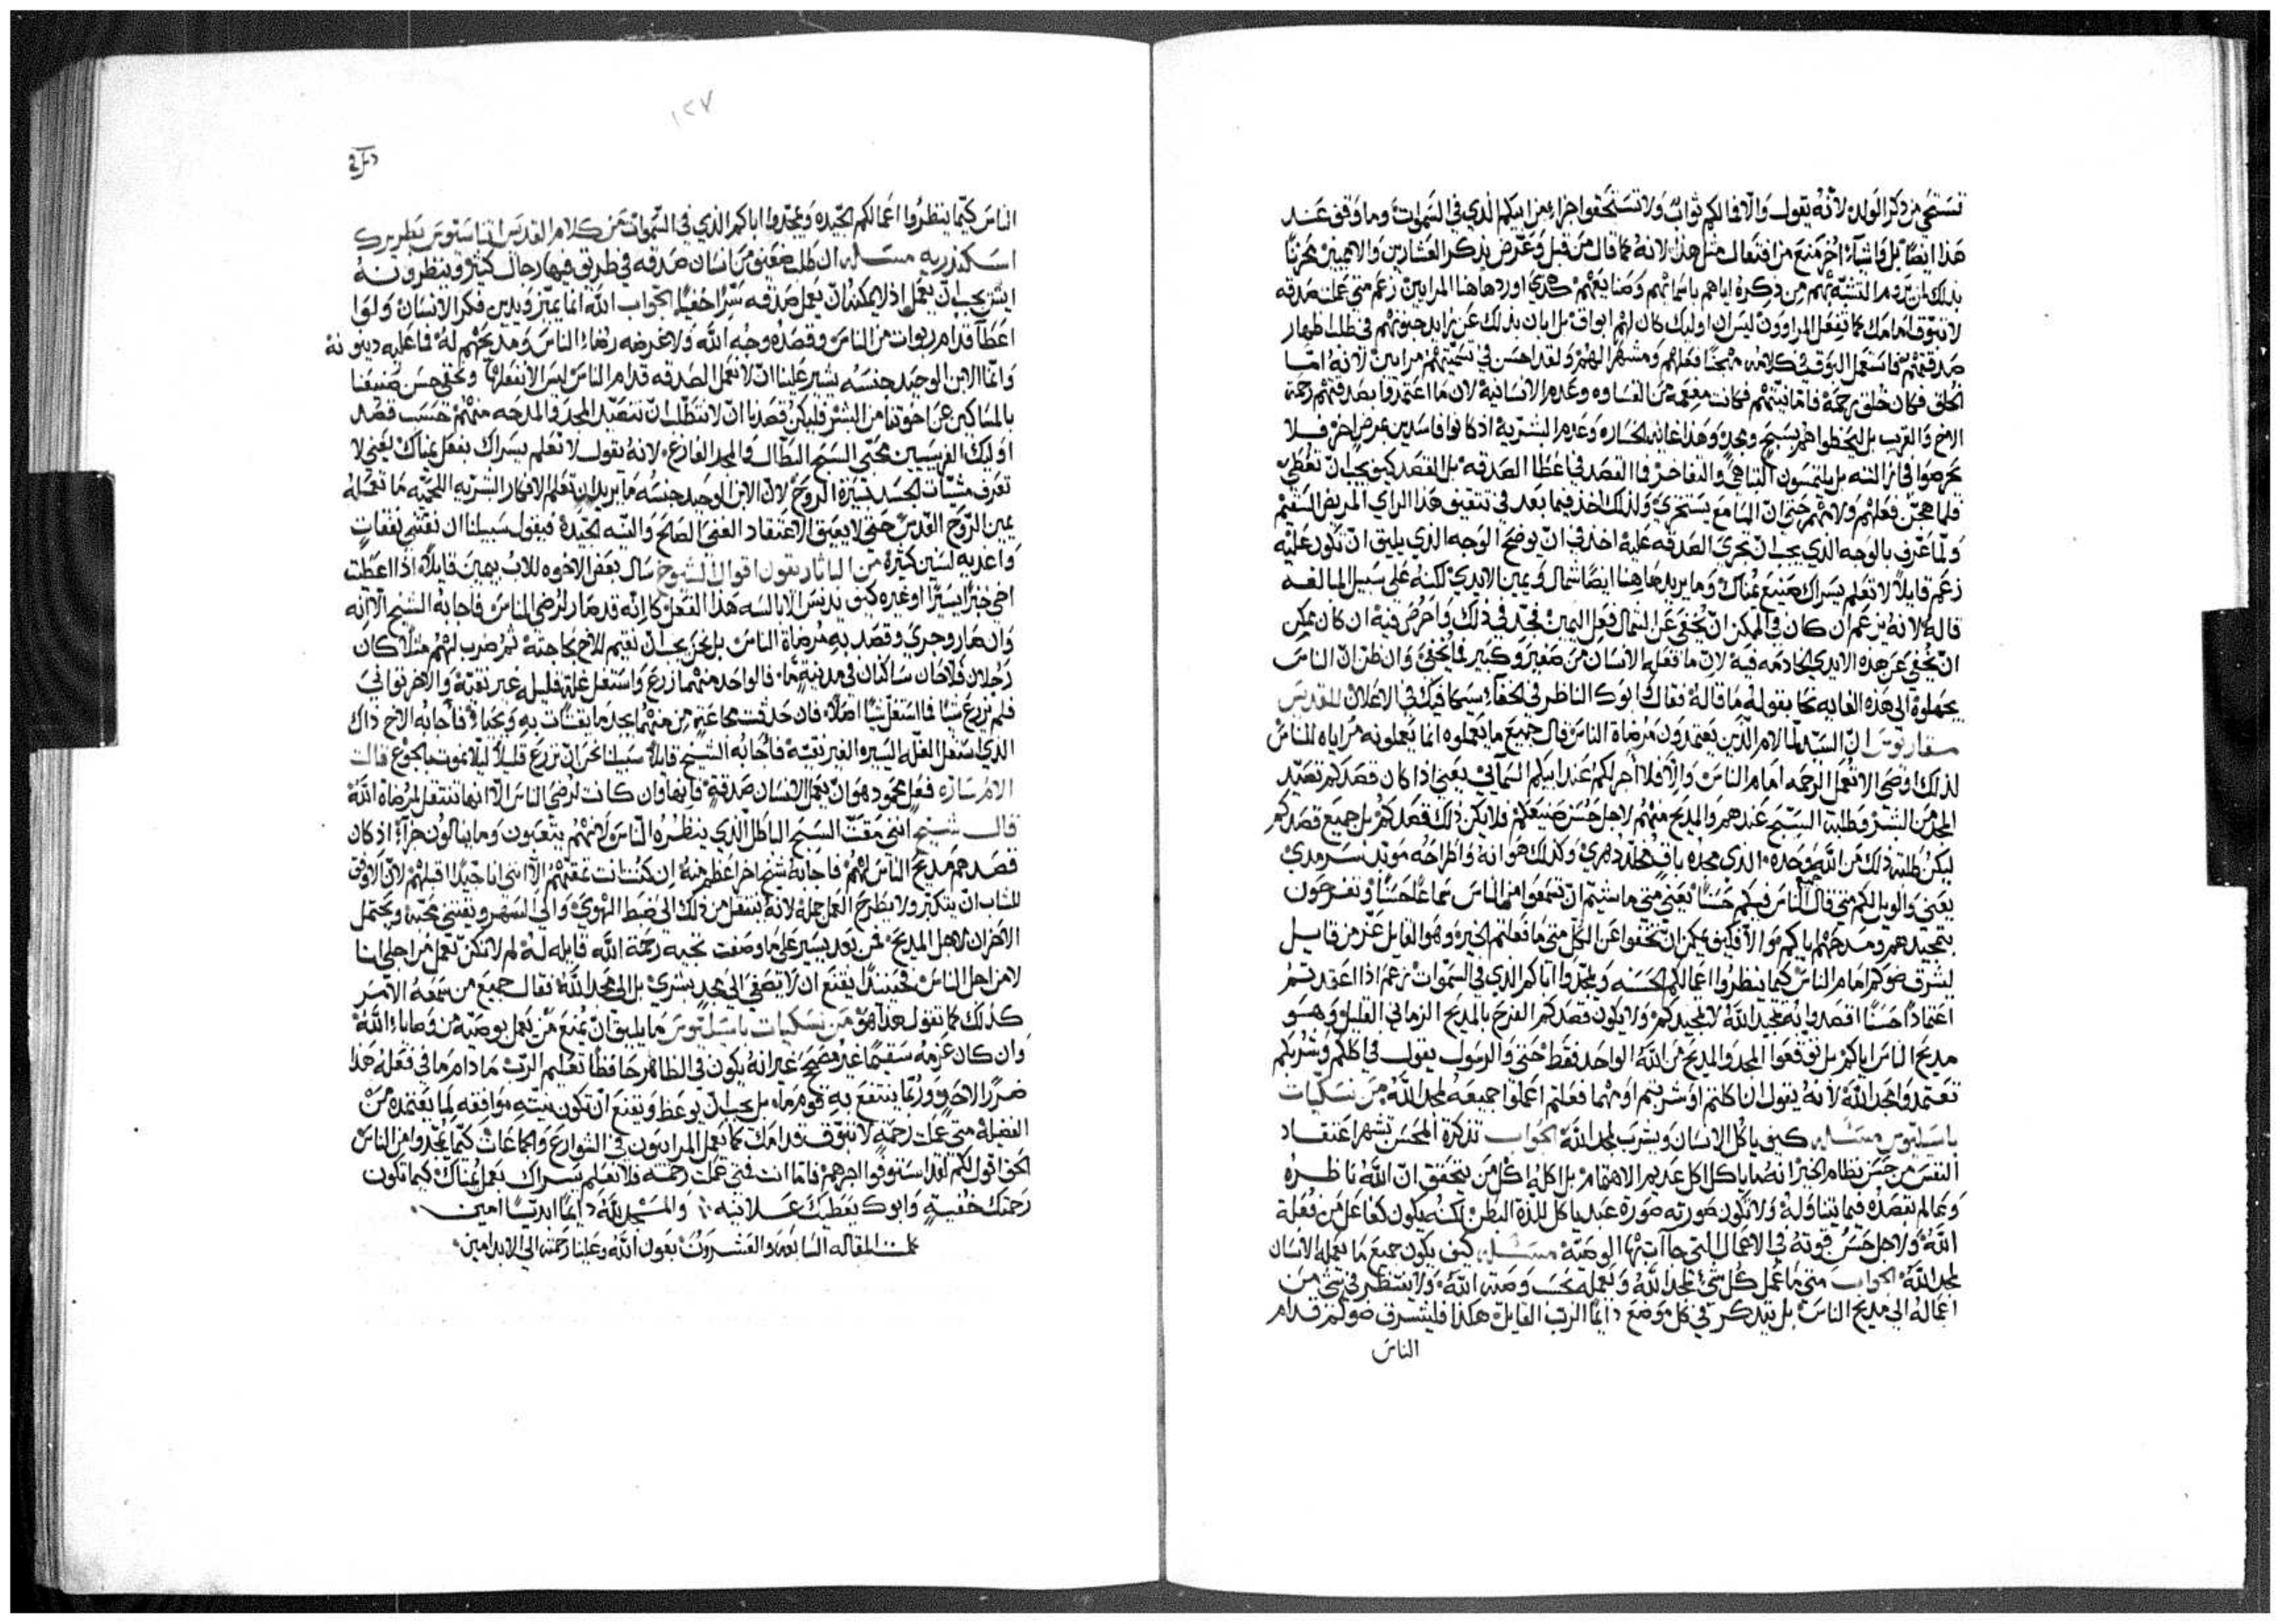 تستحي من ذكر الولد لانه يقول والا فما لكم ثواب ولا تستحقوا جزاء من ابيكم الذي في السموات وما وقف عند
هذا ايضا بل واشياء اخر منع من افتعال مثل هذا لانه كما قال من قبل وعرض بذكر العشارين والامميين محزنا
بذلك ان يروم التشبه بهم من ذكره اياهم باسمائهم وصنايعهم هكذي اورد هاهنا المرايين زعم متي عملت صدقه
لا تبوق امامك كما تفعل المراوون ليس ان اوليك كان لهم ابواق بل ابان بذلك عن تزايد جنونهم في طلب اظهار
صدقتهم فاستعمل البوق في كلامه مهجنا فعلهم ومشهرا لهم ولقد احسن في تسميتهم مرايين لانه اما
الخلق فكان خلق رحمة فاما نيتهم فكانت مفعمه من القساوه وعدم الانسانية لان ما اعتمدوا بصدقتهم رحمة
الاخ والقريب بل ليحظوا هم بتسبيح ومجد وهذا غاية الخساره وعدم البشرية اذ كانوا فاسدين بمرض اخر فلا
يحرصوا في ازالته بل يلتمسون التباهي والتفاخر فما القصد في اعطا الصدقه بل القصد كيف يجب ان تعطي
فلما هجن فعلهم ولامهم حتي ان السامع يستخزي ولذلك اخذ فيما بعد في تثقيف هذا الراي المريض السقيم
ولما عرف بالوجه الذي يجب ان تجري الصدقه عليه اخذ في ان يوضح الوجه الذي يليق ان تكون عليه
زعم قايلا لا تعلم يسراك صنيع يمناك وما يريد هاهنا ايضا شمال ويمين الايدي لكنه علي سبيل المبالغه
قاله لانه يزعم ان كان في الممكن ان تخفي عن الشمال فعل اليمين فجد في ذلك واحرص فيه ان كان يمكن
ان تخفي عن هذه الايدي الخادمه فيه لان ما تفعله الانسان من صغير وكبير فما يخفي وان ظن ان الناس
يجهلوه الي هذه الغايه كما بقوله ما قاله فقال ابوك الناظر في الخفاء سيكافيك في الاعلان للقديس
مقاريوس ان السيد لما لام الذين يعتمدون مرضاة الناس قال جميع ما يعملوه انما يعملونه مراياه للناس
لذلك اوصي الا تفعل الرحمه امام الناس والا فلا اجر لكم عند ابيكم السمائي يعني اذا كان قصدكم تصيد
المجد من البشر وطلبة التسبيح عندهم والمديح منهم لاجل حسن صنيعكم فلا يكن ذلك قصدكم بل جميع قصدكم
ليكن طلبة ذلك من الله وحده الذي مجده باق مخلد دهري وكذلك هوانه واطراحه موبد سرمدي
يعني والويل لكم متي قال جميع الناس فيكم حسنا يعني متي ما شيتم ان تسمعوا من الناس سماعا حسنا وتفرحون
بتمجيدهم ومدحهم اياكم والا فكيف يمكن ان تختفوا عن الكل متي ما فعلتم الخير وهو القايل عز من قايل
ليشرق ضوكم امام الناس كيما ينظروا اعمالكم الحسنه ويمجدوا اباكم الذي في السموات زعم اذا اعتمدتم
اعتمادا حسنا اقصدوا به تمجيد الله لا تمجيدكم ولا يكون قصدكم الفرح بالمديح الزماني القليل وهو
مديح الناس اياكم بل توقعوا المجد والمديح من الله الواحد فقط حتي والرسول يقول في اكلكم وشربكم
تعتمدوا مجد الله لانه يقول ان اكلتم او شربتم او مهما فعلتم اعملوا جميعه لمجد الله من نسكيات
باسيليوس مسئله كيف ياكل الانسان ويشرب لمجد الله الجواب تذكرة المحسن تشهر اعتقاد
النفس من حسن نظام الخير انه ما ياكل اكل عديم الاهتمام بل اكله اكل من يتحقق ان الله ناظره
وعالم بقصده فيما يتناوله ولا تكون صورته صورة عبد ياكل للذة البطن لكنه يكون كفاعل من فعلة
الله ولاجل حسن قوته في الاعمال التي جاات بها الوصية مسئله كيف يكون جميع ما يعمله الانسان
لمجد الله الجواب متي ما عمل كل شي لمجد الله ويعمله بحسب وصية الله ولا ينتظر في شي من
اعماله الي مديح الناس بل يتذكر في كل موضع دايما الرب القايل هكذا فليشرق ضوكم قدام
الناس
١٢٧
الناس كيما ينظروا اعمالكم الجيده ويمجدوا اباكم الذي في السموات من كلام القديس اثناسيوس بطريرك
اسكندريه مسئله ان طلب ضعيف من انسان صدقه في طريق فيها رجال كثير وينظرونه
ايش يجب ان يعمل اذ لا يمكنه ان يعمل صدقه سرا خفيا الجواب الله انما يميز ويدين فكر الانسان ولو ا
اعطا قدام ربوات من الناس وقصده وجه الله ولا غرضه رضاء الناس ومديحهم له فما عليه دينونه
وانما الابن الوحيد جنسه يشير علينا ان لا نعمل الصدقه قدام الناس ليس الا نفعلها ونخفي حسن صنيعنا
بالمساكين عن اخوتنا من البشر فليكن قصدنا ان لا نتطلب ان نتصيد المجد والمدحه منهم حسب قصد
اوليك الفريسيين محبي السبح البطال والمجد الفارغ لانه يقول لا تعلم يسراك بفعل يمناك يعني لا
تعرف مشيات الجسد سيرة الروح لان الابن الوحيد جنسه ما يريد ان تعلم الافكار البشريه اللحميه ما تعمله
يمين الروح القدس حتي لا يعيق الاعتقاد الغني الصالح والنيه الجيدة فيقول سبيلنا ان نفتش نفقات
واغديه لسنين كثيرة من الباتاريقون اقوال الشيوخ سال بعض الاخوه للاب بيمين قايلا اذا اعطيت
اخي خبزا يسيرا او غيره كيف يدنس الابالسه هذا الفعل كانه قد صار لرضي الناس فاجابه الشيخ الا انه
وان صار وجري وقصد به مرضاة الناس بل نحن يجب ان نقيم للاخ بحاجته ثم ضرب لهم مثلا كان
رجلان فلاحان ساكنان في مدينة ما فالواحد منهما زرع واستغل غلة قليله غير نقيه والاخر توانى
فلم يزرع شيا فما استغل شيا اصلا فان حدثت مجاعة من منهما يجد ما يقتات به ويحيا فاجابه الاخ ذاك
الذي استغل الغله اليسيره الغير نقيه فاجابه الشيخ قايلا سبيلنا نحن ان نزرع قليلا ليلا نموت بالجوع قالت
الام ساره فعل محمود هو ان يعمل الانسان صدقة فانها وان كانت لرضي الناس الا انها تنتقل لمرضاة الله
قال شيخ انني مقت السبح الباطل الذي ينظره الناس لانهم يتعبون وما ينالون جزاء اذ كان
قصدهم مديح الناس لهم فاجابه شيخ اخر اعظم منه ان كنت انت تمقتهم الا انني انا جيدا اقبلهم لان الاوفق
للشاب ان يتكبر ولا يطرح العمل جمله لانه ينتقل من ذلك الي ضبط الهوي والي السهر ويقتني محبة ويحتمل
الاحزان لاجل المديح فمن بعد يسير علي ما وصفت تجيه رحمة الله قايله له لم لا تكن تعمل من اجلي انا
لا من اجل الناس فحينيذ يقنع ان لا يصغي الي مجد بشري بل الي مجد الله فقال جميع من سمعه الامر
كذلك كما تقول هذا هو من نسكيات باسيليوس ما يليق ان يمنع من يعمل بوصية من وصايا الله
وان كان عزمه سقيما غير صحيح غير انه يكون في الظاهر حافظا تعليم الرب ما دام ما في فعله هذا
ضررا لاحد وربما ينتفع به قوم ما بل يجب ان يوعظ ويقنع ان تكون نيته موافقه لما يعتمده من
الفضيله متي عملت رحمة لا تبوق قدامك كما يعمل المراييون في الشوارع والجماعات كيما يمجدوا من الناس
الحق اقول لكم لقد استوفوا اجرهم فاما انت فمتي عملت رحمة فلا تعلم يسراك بعمل يمناك كيما تكون
رحمتك خفية وابوك يعطيك علانيه والمسبح لله دايما ابديا امين
كملت المقاله السابعه والعشرون بعون الله وعلينا رحمته الي الابد امين